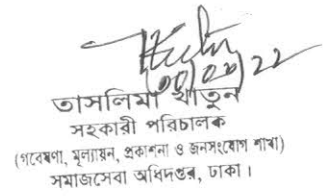 তাসলিমা খাতুন
সহকারী পরিচালক
(গবেষণা, মূল্যায়ন, প্রকাশনা ও জনসংযোগ শাখা)
সমাজসেবা অধিদপ্তর, ঢাকা।